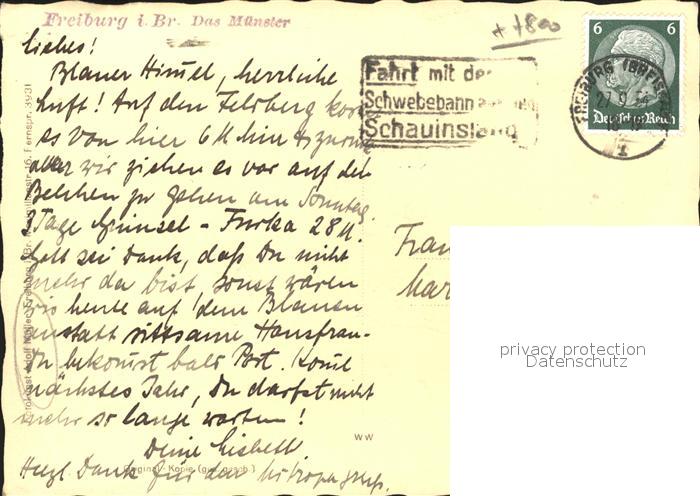 Freiburg i. Br. Das Münster
+ 1800
Liebes!
Blauer Himmel, herrliche
Luft! Auf den Felsberg
es von hier 6 M hin & zurück
aber wir ziehen es vor auf den
Belchen zu gehen am Sonntag.
3 Tage Grimsel - Furka 28 M.
Gott sei Dank, daß Du nicht
mehr da bist, sonst wären
wir heute auf dem Blauen
anstatt sittsame Hausfrau-
Du bekommst bald Post. Komm
nächstes Jahr, Du darfst nicht
mehr so lange warten!
Deine Lisbeth
Herzl Dank für den
Fahrt mit der
Schwebebahn
Schauinsland
6 6
Deutsches Reich
FREIBURG (BREISGAU)
27.9.34
1
Frau
Mar
privacy protection
Datenschutz
WW
Original-Kopie (ges. gesch.)